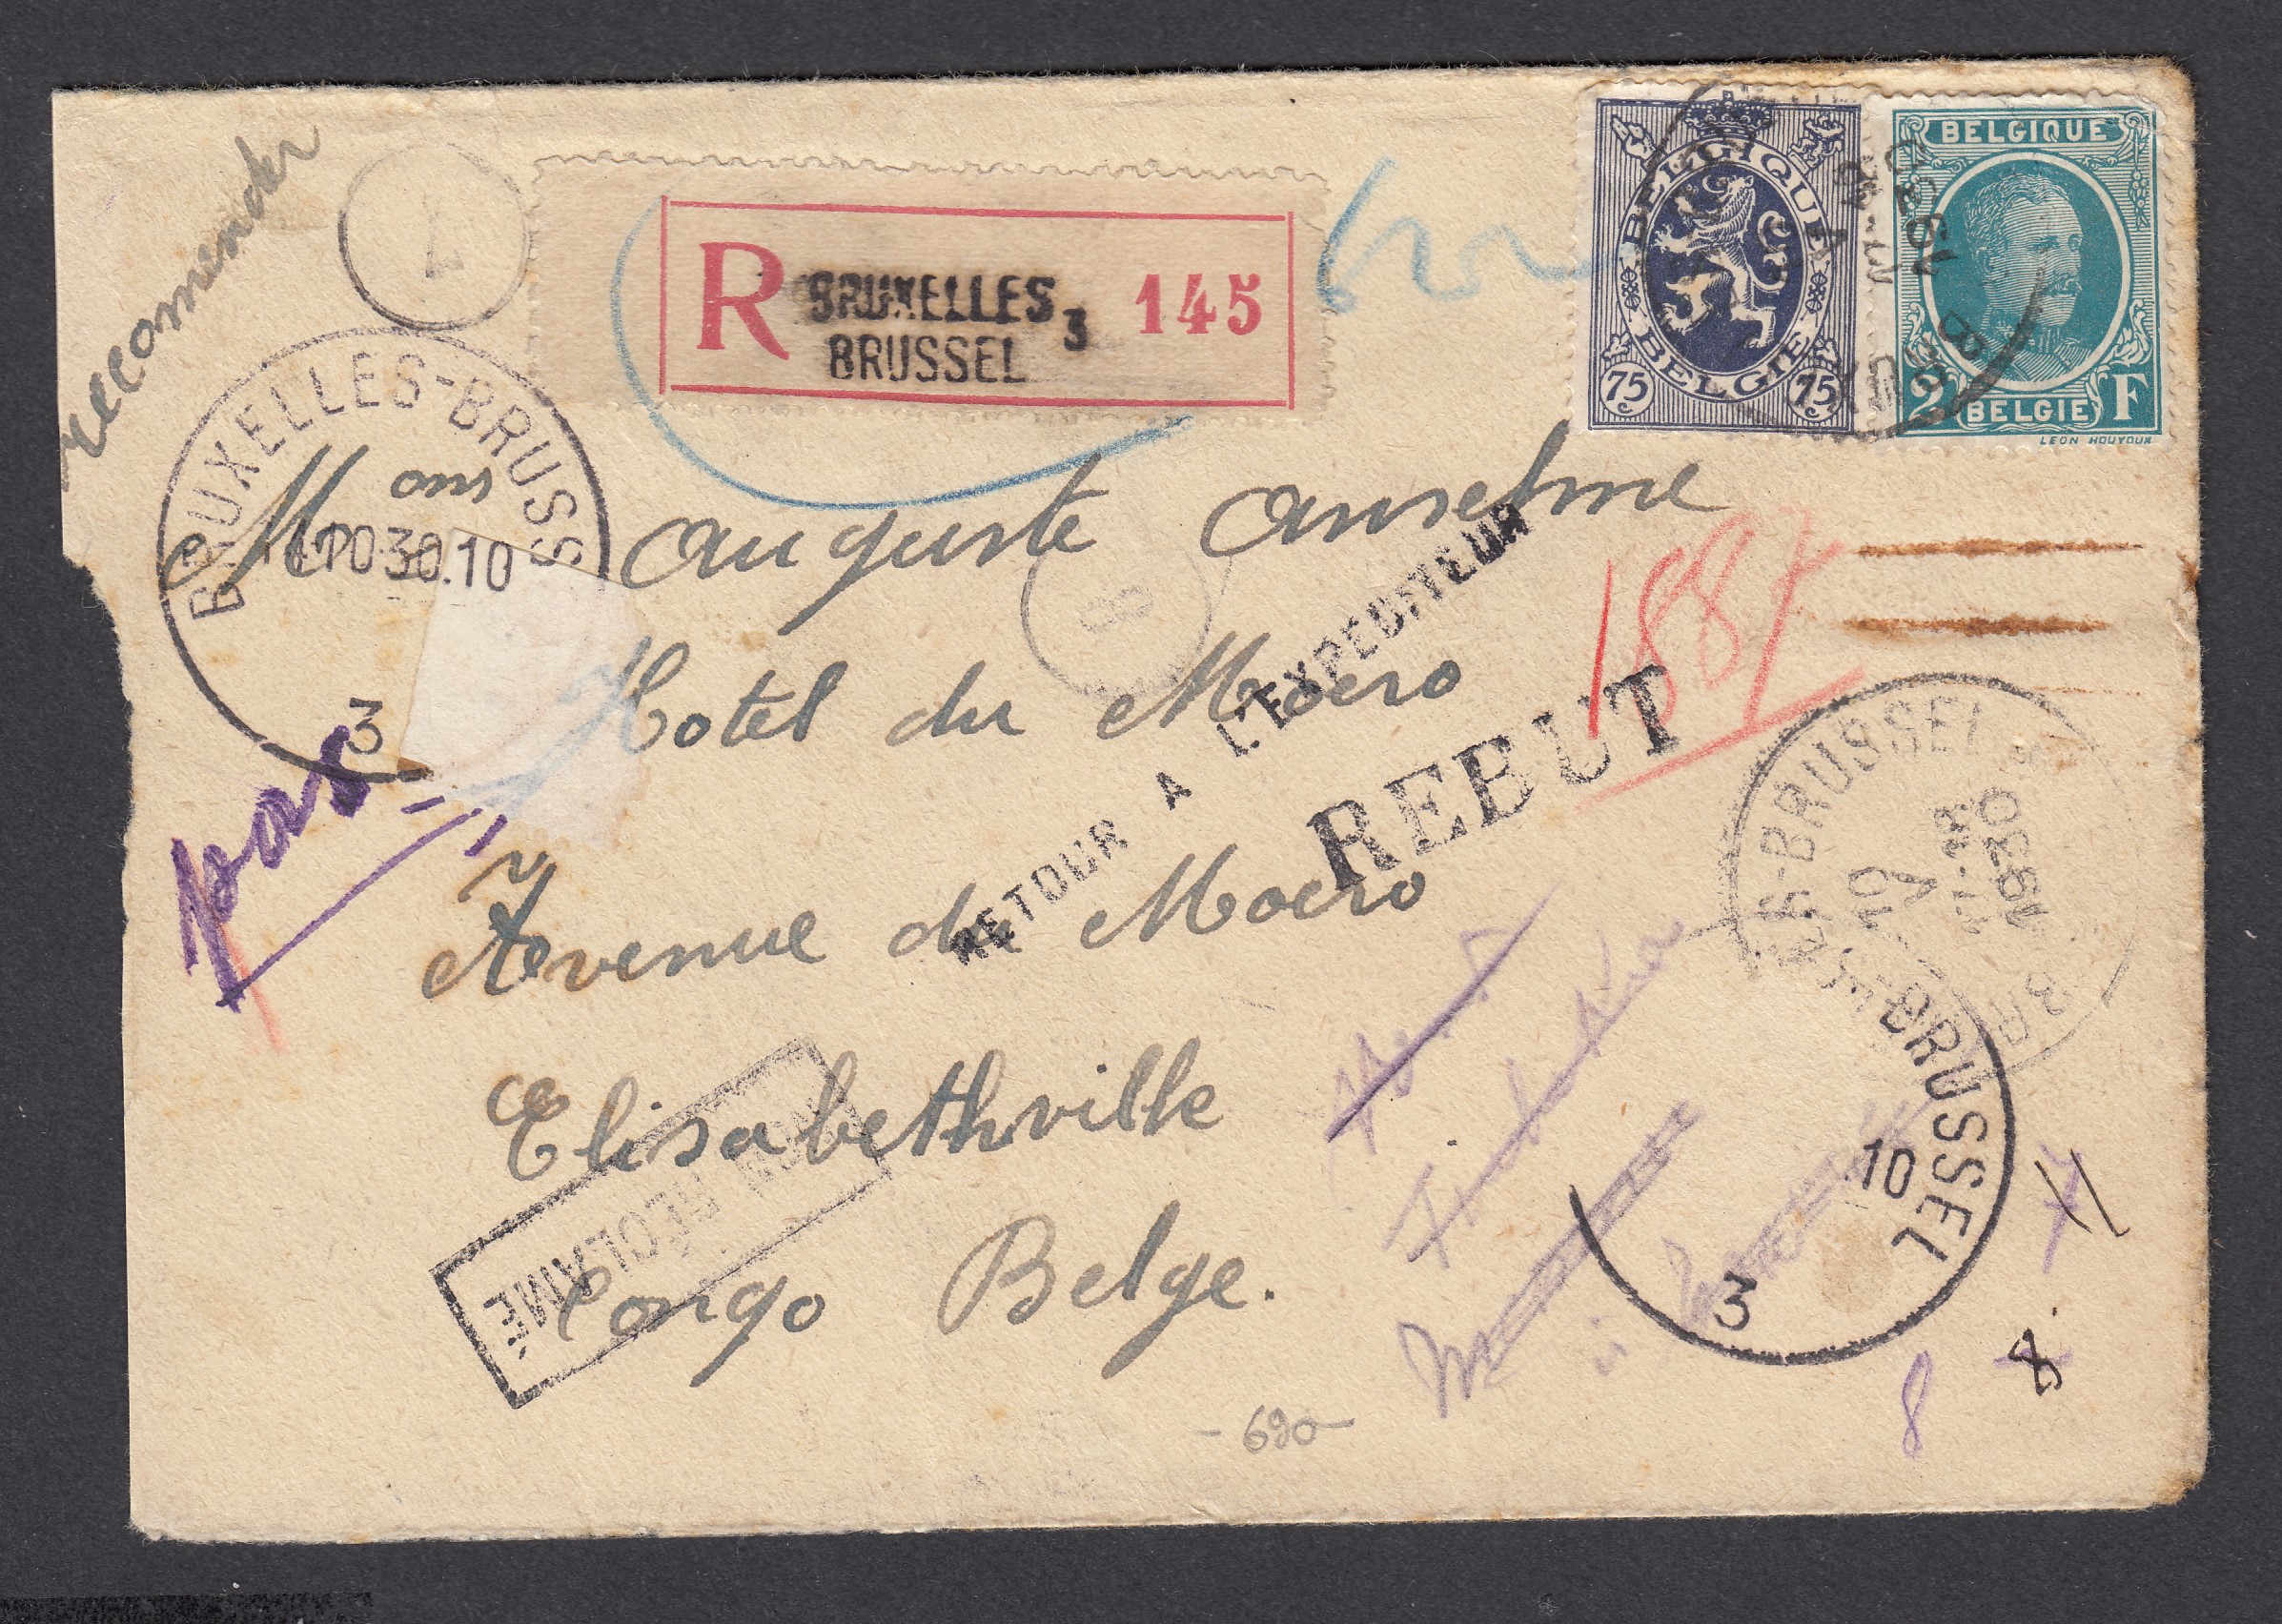 recomender
7
R BRUXELLES 3 145
BRUSSEL
BELGIQUE
BELGIE
75c 75c
BELGIQUE
2 BELGIE F
LEON HOUYOUX
BRUXELLES-BRUSS
30.10
3
Mons Auguste Anselme
8
Hotel du Moero
Avenue du Moero
Elisabethville
Congo Belge.
RETOUR A L'EXPEDITEUR
REBUT
1887
pas
NON RÉCLAMÉ
-BRUSSEL
10
V
1930
-BRUSSEL
10
3
11
8
8.
-690-